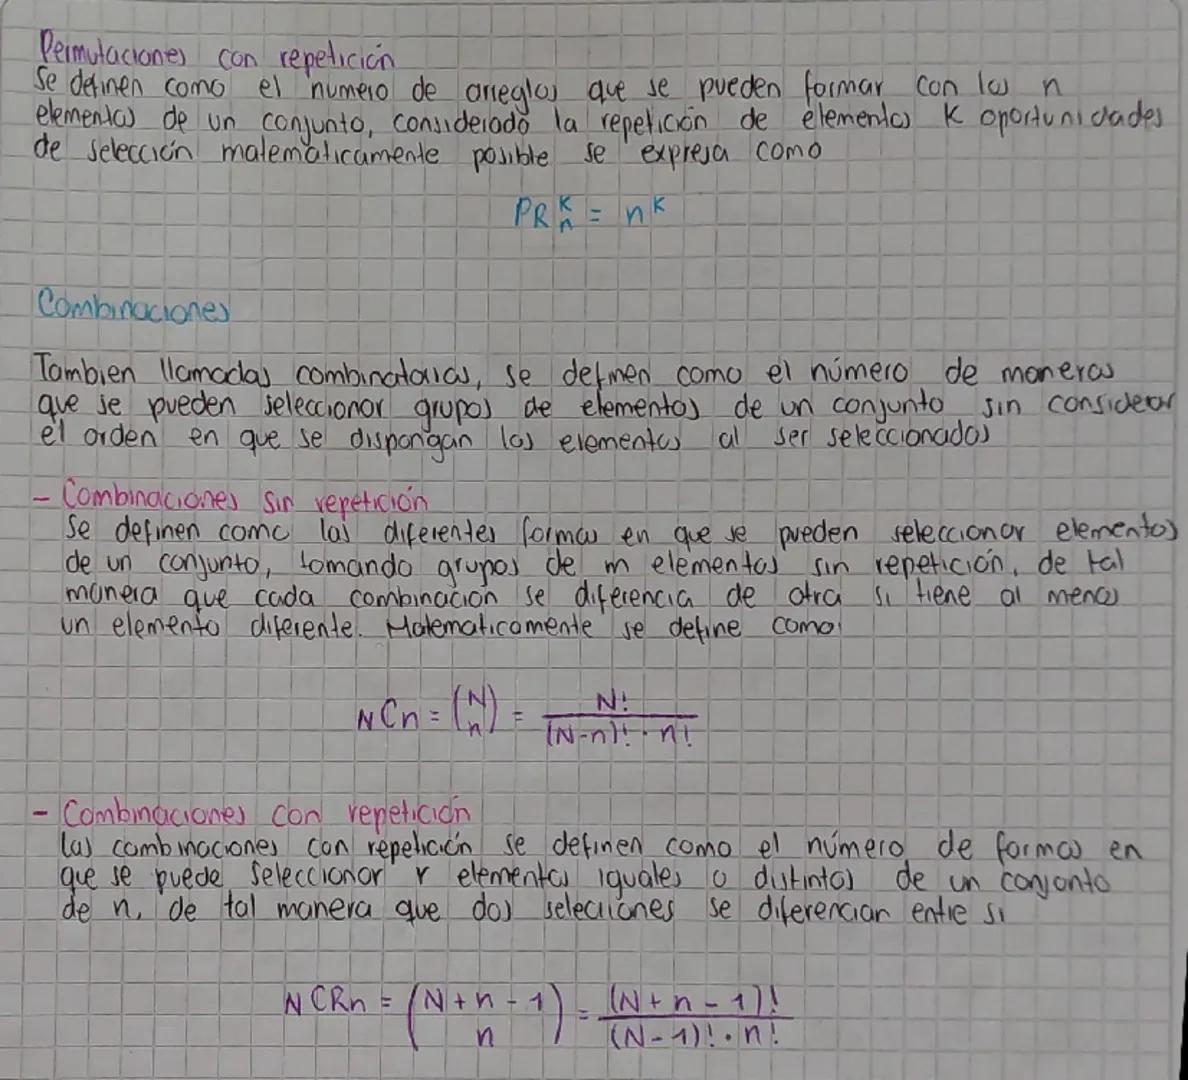 Permutaciones con repetición
Se definen como el numero de arreglos que se pueden formar con los n
elementos de un conjunto, considerado la repetición de elementos K oportunidades
de selección matemáticamente posible se expresa como
PR K n = n^K
Combinaciones
Tambien llamadas combinatorias, se definen como el número de maneras
que se pueden seleccionar grupos de elementos de un conjunto sin considerar
el orden en que se dispongan los elementos al ser seleccionados
- Combinaciones sin repetición
Se definen como las diferentes formas en que se pueden seleccionar elementos
de un conjunto, tomando grupos de m elementos sin repetición, de tal
manera que cada combinación se diferencia de otra si tiene al menos
un elemento diferente. Matematicamente se define como:
N C n = (N n) = N! / (N-n)! · n!
- Combinaciones con repetición
las combinaciones con repetición se definen como el número de formas en
que se puede seleccionar r elementos iguales o distintos de un conjonto
de n, de tal manera que dos selecciones se diferencian entre si
N CRn = (N + n - 1 n) = (N + n - 1)! / (N - 1)! · n!